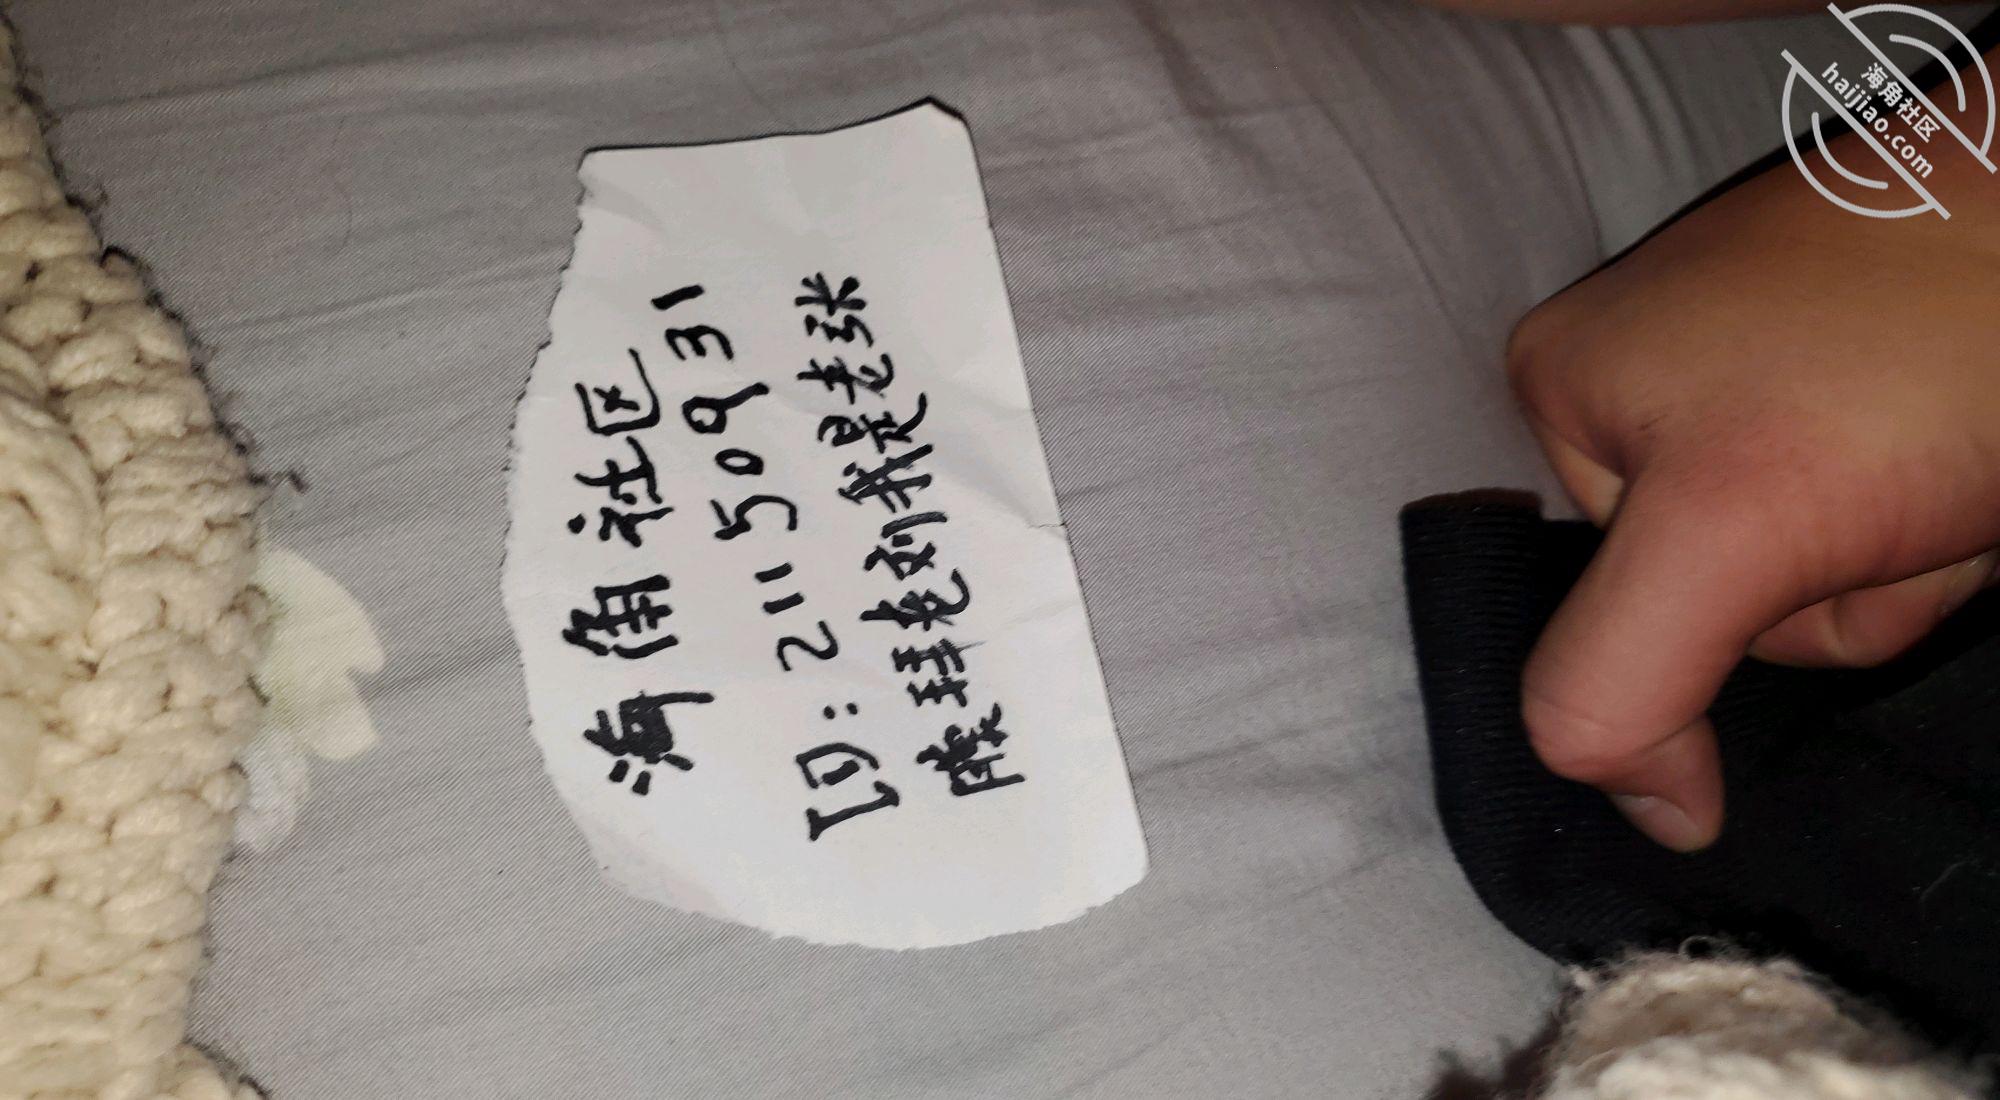 海角社区
ID: 21150931
隙珪老刘我是老张
海角社区
haijiao.com